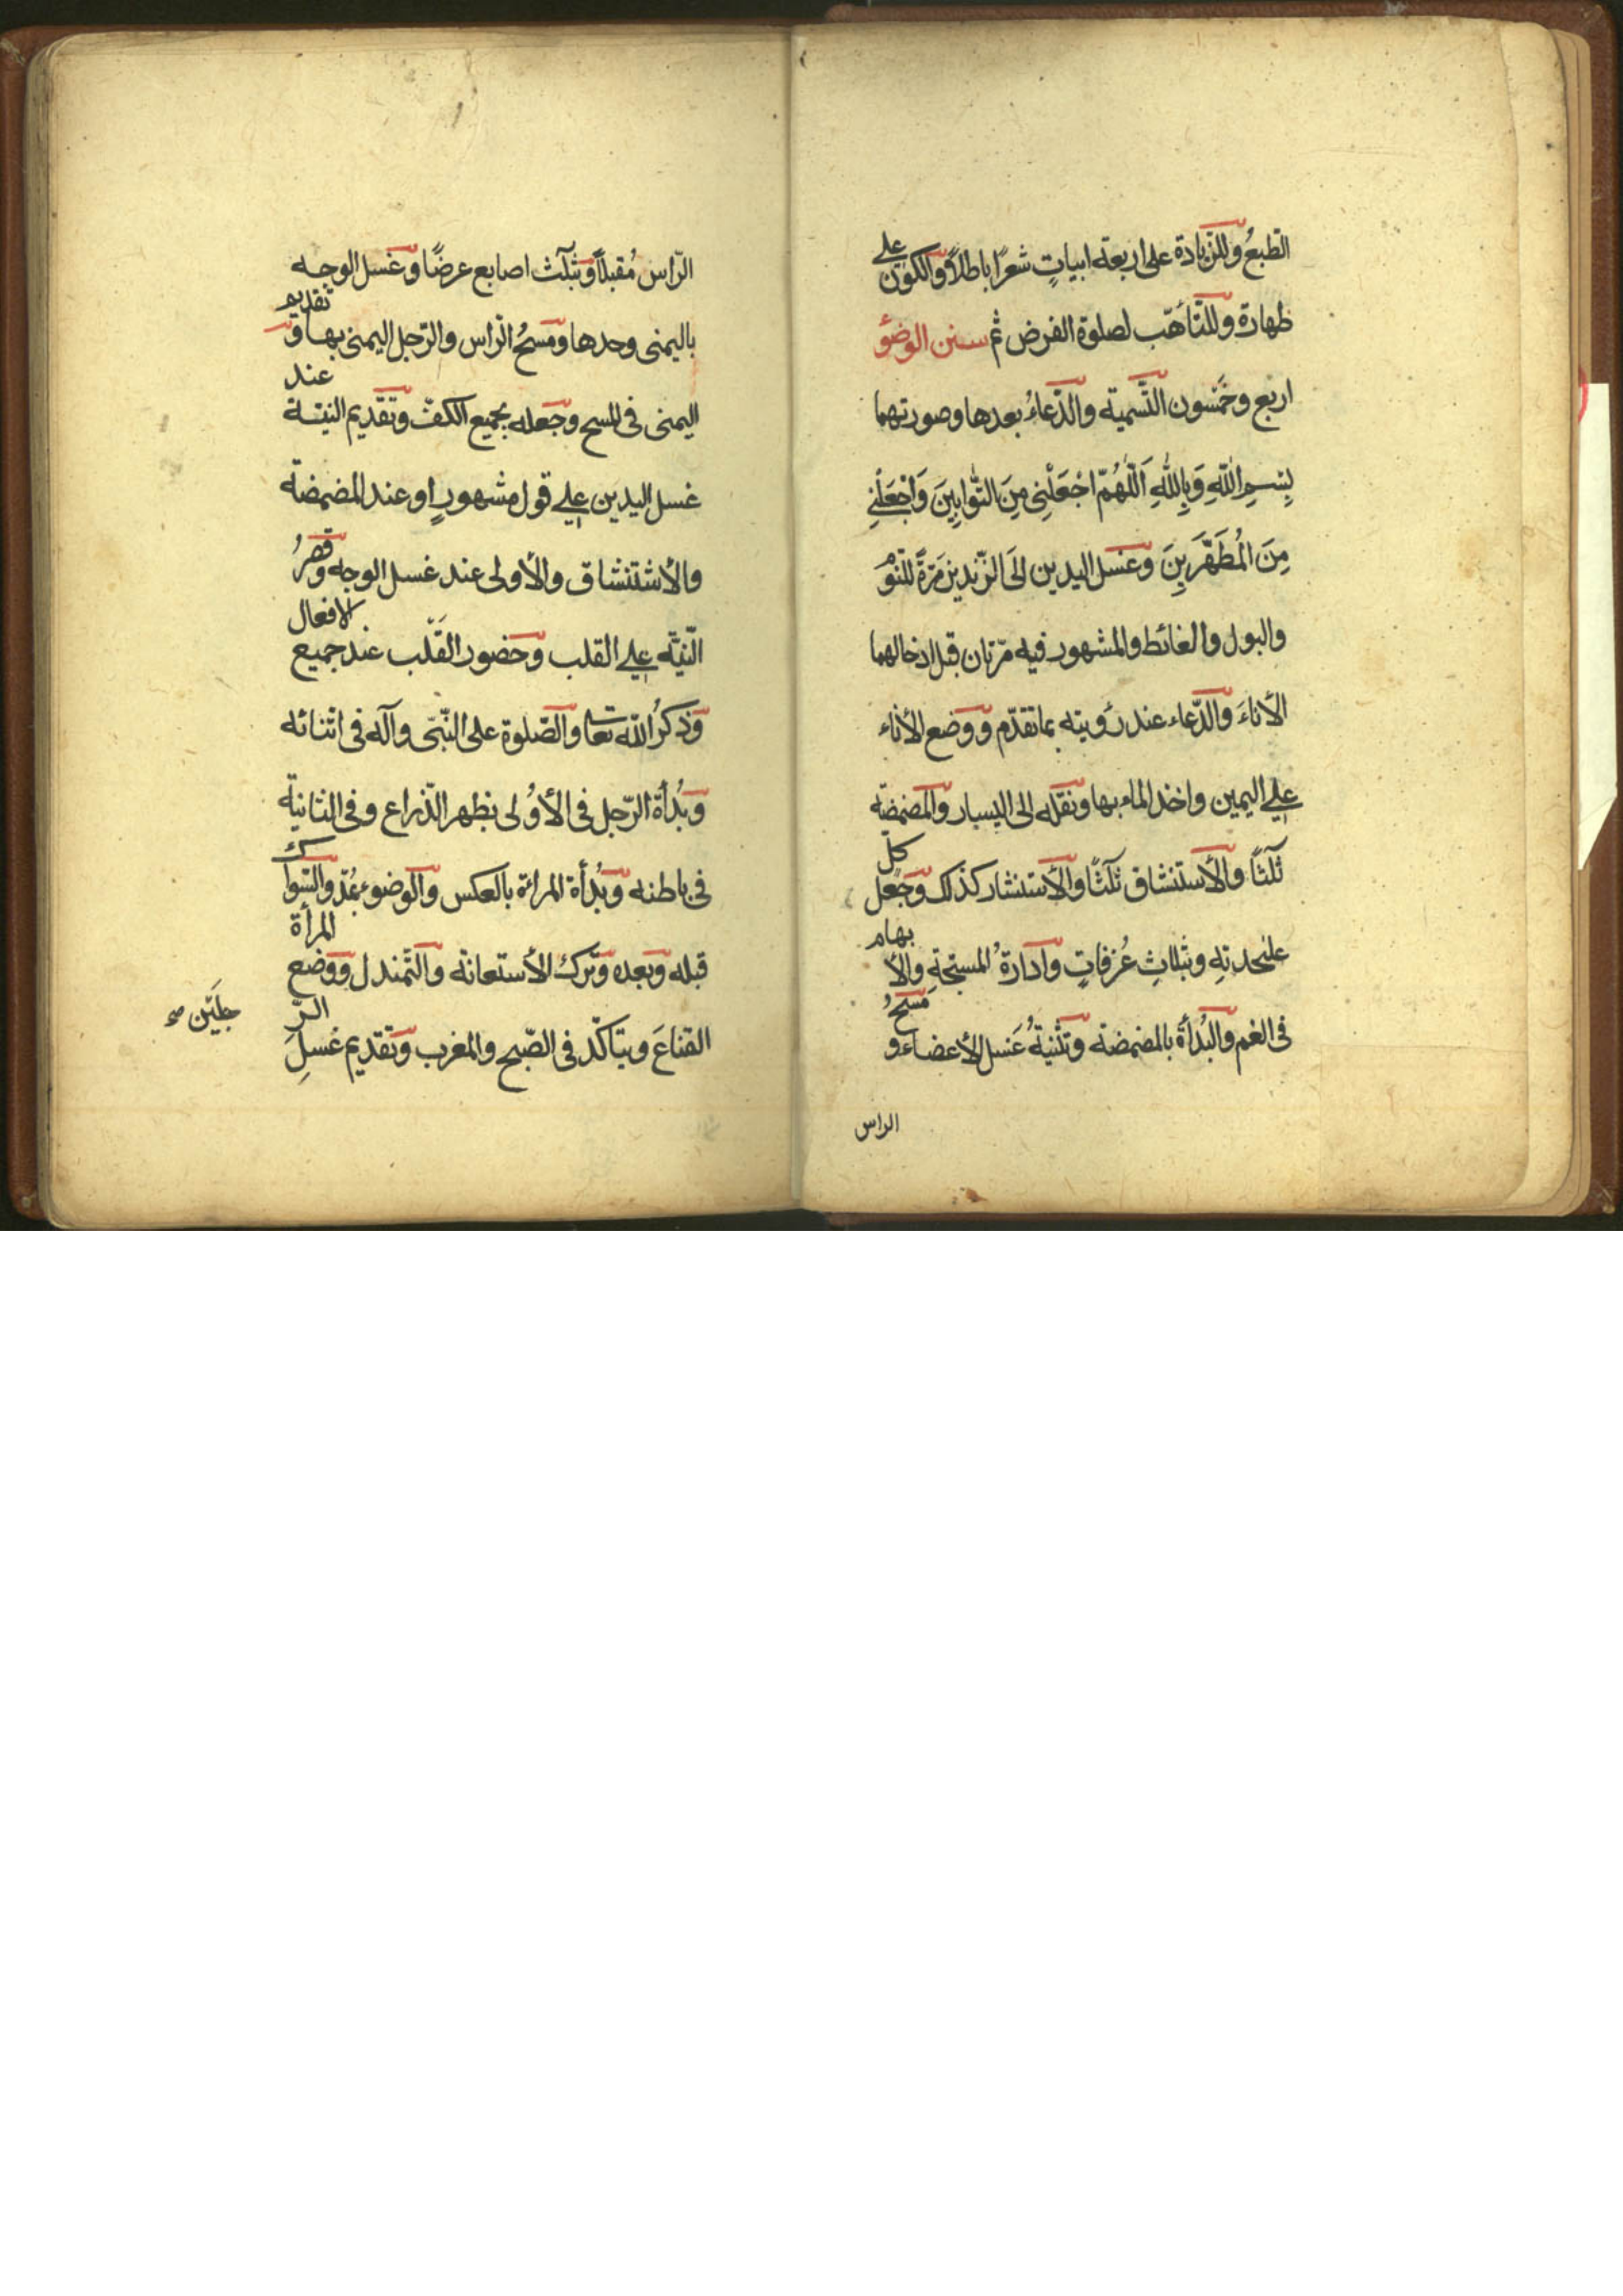 الطبعُ وللزيادة على اربعة ابياتٍ شعرًا باطلاً وللكون على
طهارة وللتأهّب لصلوة الفرض ثم سنن الوضوٴ
اربع وخمسون التّسمية والدّعاءُ بعدها وصورتهما
بِسْمِ اللّٰهِ وَبِاللّٰهِ اَللّٰهُمَّ اجْعَلْنِى مِنَ التَّوّابِينَ وَاجْعَلْنِى
مِنَ الْمُطَهَّرِينَ وغسل اليدين الَى الزّندين مَرّةً للنّوْمِ
والبول والغائط والمشهور فيه مرّتان قبل ادخالهما
الأناءَ والدّعاء عند رؤيته بما تقدّم ووضع الأناء
على اليمين واخذ الماء بها ونقله الى اليسار والمضمضة
ثَلٰثًا والأستنشاق ثلٰثًا والأستنثار كذلك وجعل كلّ
عليحدتهِ وبثلاثِ غُرَفاتٍ وادارةُ المسبّحةِ والأبهام
فى الفم والبُدأة بالمضمضة وتثنيةُ غسل الأعضاء ومَسحُ
الراس
الرّاس مُقبلاً وبثلٰث اصابع عرضًا وغسل الوجه
باليمنى وحدها ومسحُ الرّاس والرّجل اليمنى بها وتقديم
اليمنى فى المسح وجعله بجميع الكفّ وتقديم النيّة عند
غسل اليدين على قول مشهورٍ او عند المضمضة
والأستنشاق والأولى عند غسل الوجه وقصرُ
النّيّة على القلب وحضور القَلب عند جميع الافعال
وذكرُ الله تعا والصّلوة على النّبىّ وآله فى اثنائه
وبُدأة الرّجل فى الأوُلى بظهر الذّراع وفى الثانية
فى باطنه وبُدأة المراة بالعكس والوضوء بمُدّ والسّواك
قبله وبعده وترك الأستعانة والتّمندل ووضع المرأة
القناعَ ويتاكّد فى الصّبح والمغرب وتقديم غسلِ الرّ
جلَين صح